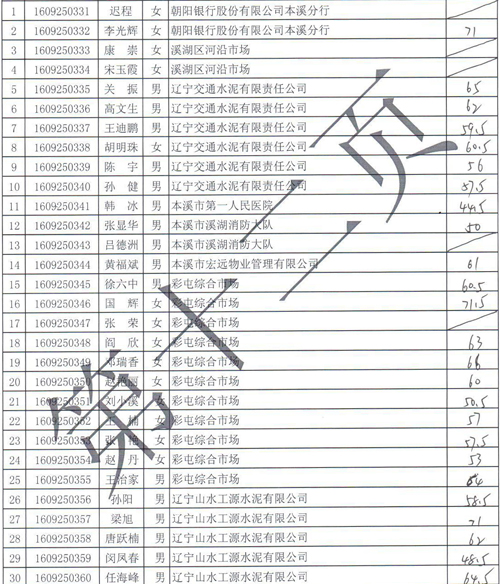 1 1609250331 迟程 女 朝阳银行股份有限公司本溪分行
2 1609250332 李光辉 女 朝阳银行股份有限公司本溪分行 71
3 1609250333 康崇 女 溪湖区河沿市场
4 1609250334 宋玉霞 女 溪湖区河沿市场
5 1609250335 关振 男 辽宁交通水泥有限责任公司 65
6 1609250336 高文生 男 辽宁交通水泥有限责任公司 62
7 1609250337 王迪鹏 男 辽宁交通水泥有限责任公司 59.5
8 1609250338 胡明珠 女 辽宁交通水泥有限责任公司 60.5
9 1609250339 陈宇 男 辽宁交通水泥有限责任公司 56
10 1609250340 孙健 男 辽宁交通水泥有限责任公司 57.5
11 1609250341 韩冰 男 本溪市第一人民医院 44.5
12 1609250342 张显华 男 本溪市溪湖消防大队 50
13 1609250343 吕德洲 男 本溪市溪湖消防大队
14 1609250344 黄福斌 男 本溪市宏远物业管理有限公司 61
15 1609250345 徐六中 男 彩屯综合市场 60.5
16 1609250346 国辉 女 彩屯综合市场 71.5
17 1609250347 张荣 女 彩屯综合市场
18 1609250348 阎欣 女 彩屯综合市场 63
19 1609250349 邓瑞香 女 彩屯综合市场 66
20 1609250350 赵艳丽 女 彩屯综合市场 60
21 1609250351 刘小溪 女 彩屯综合市场 50.5
22 1609250352 王楠 女 彩屯综合市场 57
23 1609250353 张艳 女 彩屯综合市场 57.5
24 1609250354 赵丹 女 彩屯综合市场 53
25 1609250355 王怡家 男 彩屯综合市场
26 1609250356 孙阳 男 辽宁山水工源水泥有限公司 58.5
27 1609250357 梁旭 男 辽宁山水工源水泥有限公司 71
28 1609250358 唐跃楠 男 辽宁山水工源水泥有限公司 62
29 1609250359 闵凤春 男 辽宁山水工源水泥有限公司 48.5
30 1609250360 任海峰 男 辽宁山水工源水泥有限公司 64.5
第十二页